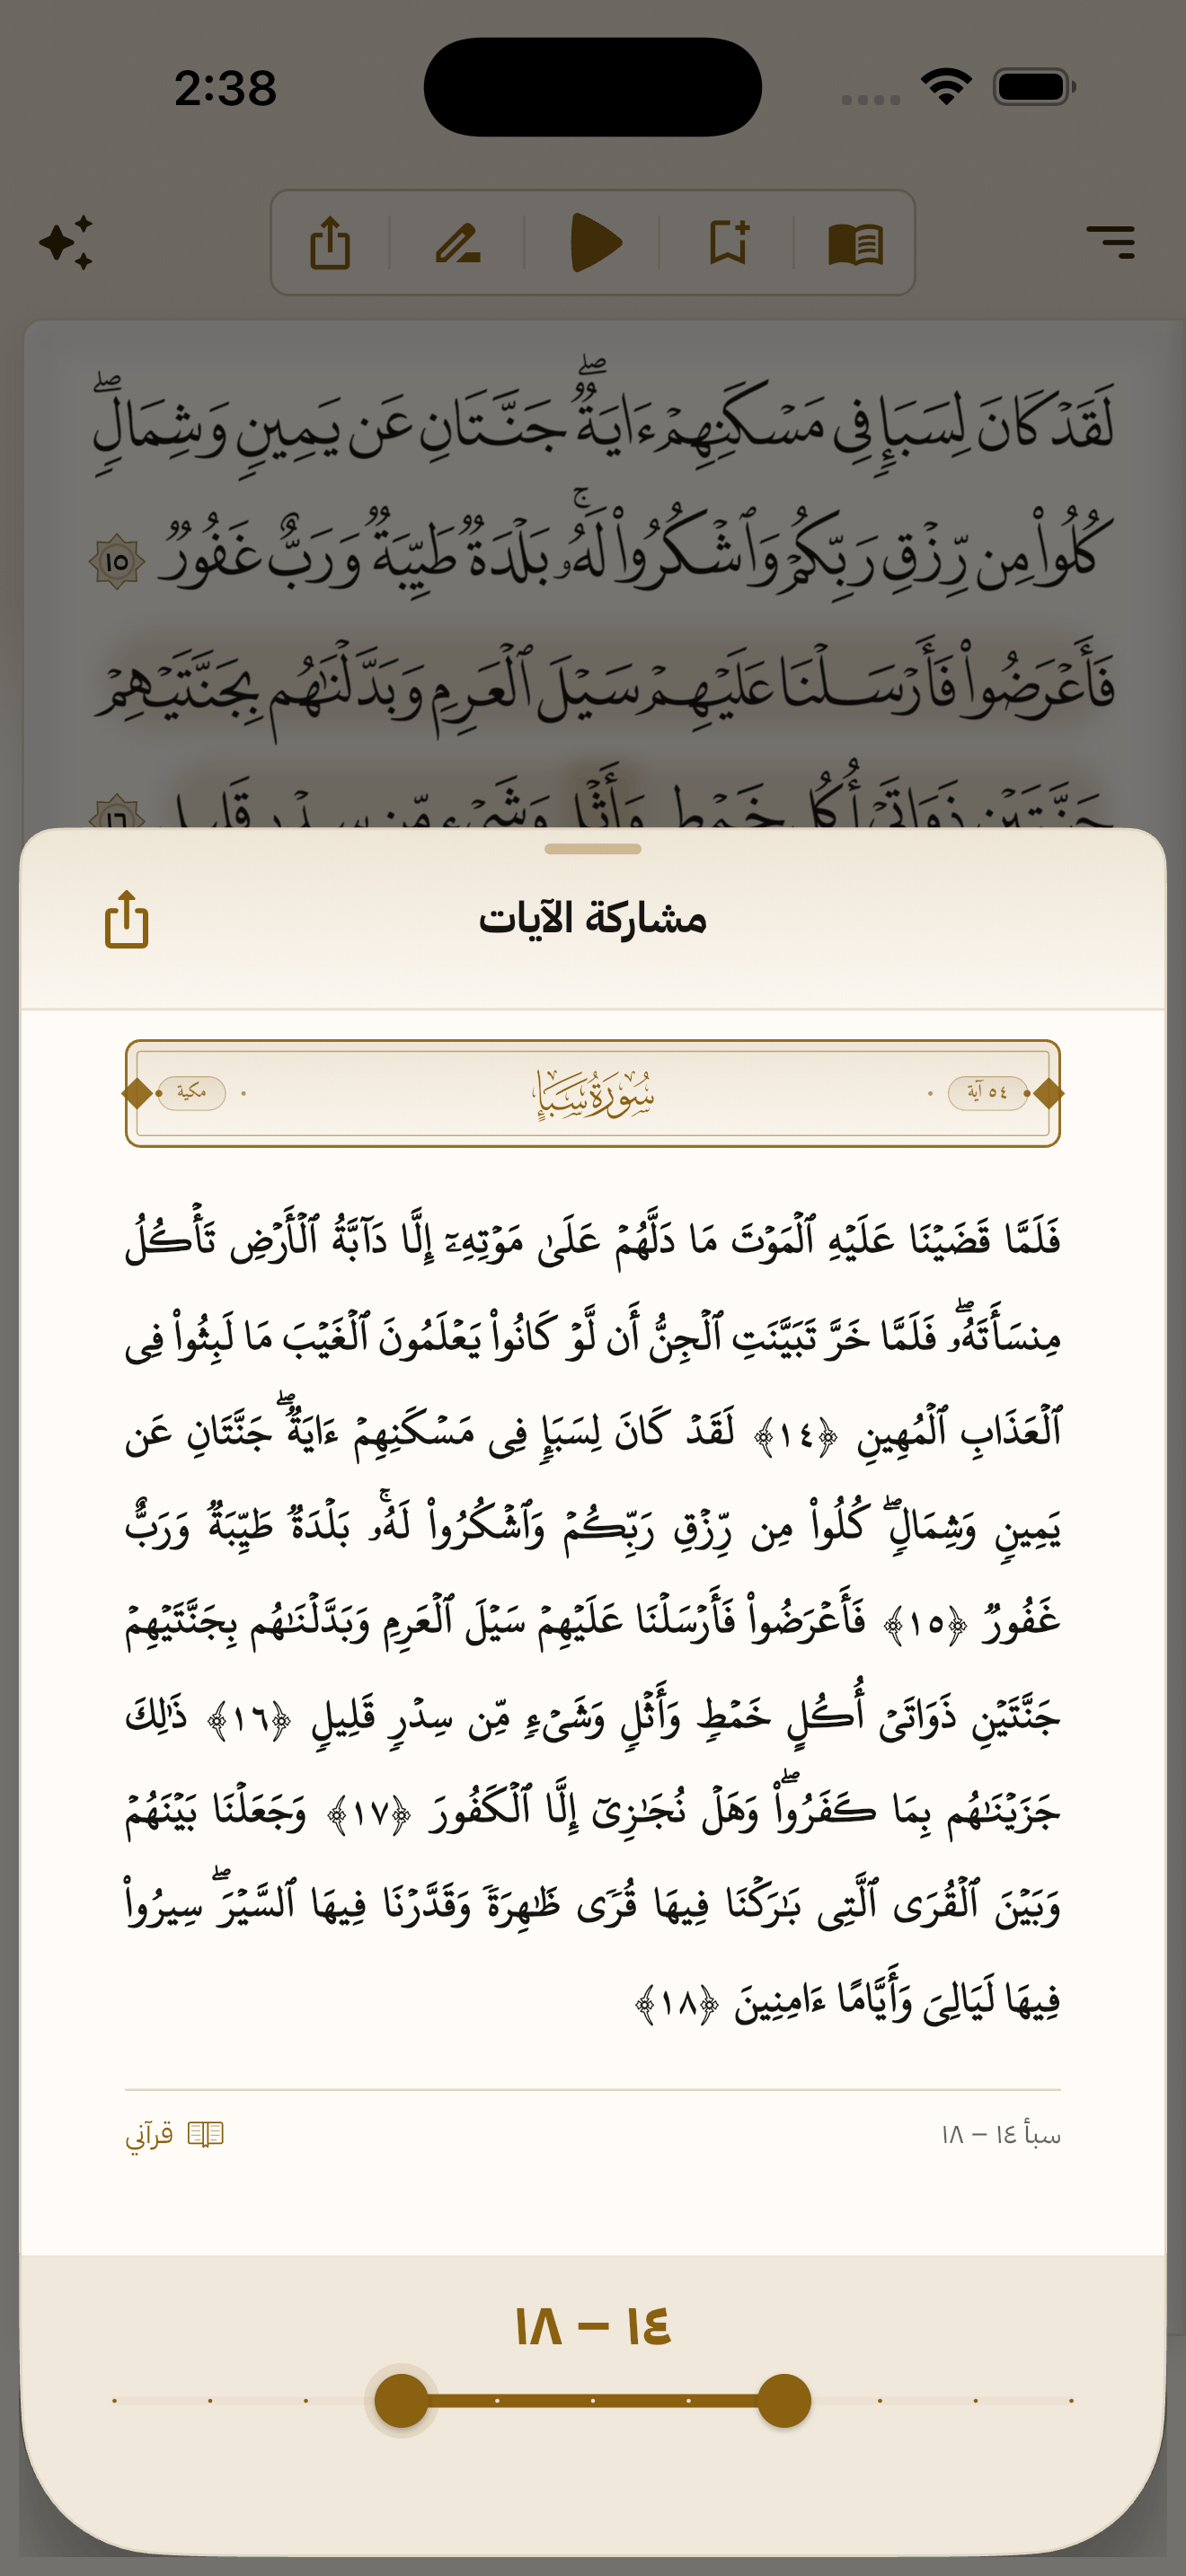 2:38
لَقَدْ كَانَ لِسَبَإٍ فِى مَسْكَنِهِمْ ءَايَةٌ ۖ جَنَّتَانِ عَن يَمِينٍ وَشِمَالٍ ۖ
كُلُوا۟ مِن رِّزْقِ رَبِّكُمْ وَٱشْكُرُوا۟ لَهُۥ ۚ بَلْدَةٌ طَيِّبَةٌ وَرَبٌّ غَفُورٌ ١٥
فَأَعْرَضُوا۟ فَأَرْسَلْنَا عَلَيْهِمْ سَيْلَ ٱلْعَرِمِ وَبَدَّلْنَٰهُم بِجَنَّتَيْهِمْ
جَنَّتَيْنِ ذَوَاتَىْ أُكُلٍ خَمْطٍ وَأَثْلٍ وَشَىْءٍ مِّن سِدْرٍ قَلِيلٍ ١٦
مشاركة الآيات
٥٤ آية
سُورَةُ سَبَإٍ
مكية
فَلَمَّا قَضَيْنَا عَلَيْهِ ٱلْمَوْتَ مَا دَلَّهُمْ عَلَىٰ مَوْتِهِۦٓ إِلَّا دَآبَّةُ ٱلْأَرْضِ تَأْكُلُ
مِنسَأَتَهُۥ ۖ فَلَمَّا خَرَّ تَبَيَّنَتِ ٱلْجِنُّ أَن لَّوْ كَانُوا۟ يَعْلَمُونَ ٱلْغَيْبَ مَا لَبِثُوا۟ فِى
ٱلْعَذَابِ ٱلْمُهِينِ ﴿١٤﴾ لَقَدْ كَانَ لِسَبَإٍ فِى مَسْكَنِهِمْ ءَايَةٌ ۖ جَنَّتَانِ عَن
يَمِينٍ وَشِمَالٍ ۖ كُلُوا۟ مِن رِّزْقِ رَبِّكُمْ وَٱشْكُرُوا۟ لَهُۥ ۚ بَلْدَةٌ طَيِّبَةٌ وَرَبٌّ
غَفُورٌ ﴿١٥﴾ فَأَعْرَضُوا۟ فَأَرْسَلْنَا عَلَيْهِمْ سَيْلَ ٱلْعَرِمِ وَبَدَّلْنَٰهُم بِجَنَّتَيْهِمْ
جَنَّتَيْنِ ذَوَاتَىْ أُكُلٍ خَمْطٍ وَأَثْلٍ وَشَىْءٍ مِّن سِدْرٍ قَلِيلٍ ﴿١٦﴾ ذَٰلِكَ
جَزَيْنَٰهُم بِمَا كَفَرُوا۟ ۖ وَهَلْ نُجَٰزِىٓ إِلَّا ٱلْكَفُورَ ﴿١٧﴾ وَجَعَلْنَا بَيْنَهُمْ
وَبَيْنَ ٱلْقُرَى ٱلَّتِى بَٰرَكْنَا فِيهَا قُرًى ظَٰهِرَةً وَقَدَّرْنَا فِيهَا ٱلسَّيْرَ ۖ سِيرُوا۟
فِيهَا لَيَالِىَ وَأَيَّامًا ءَامِنِينَ ﴿١٨﴾
سبأ ١٤ – ١٨
قرآني
١٤ – ١٨